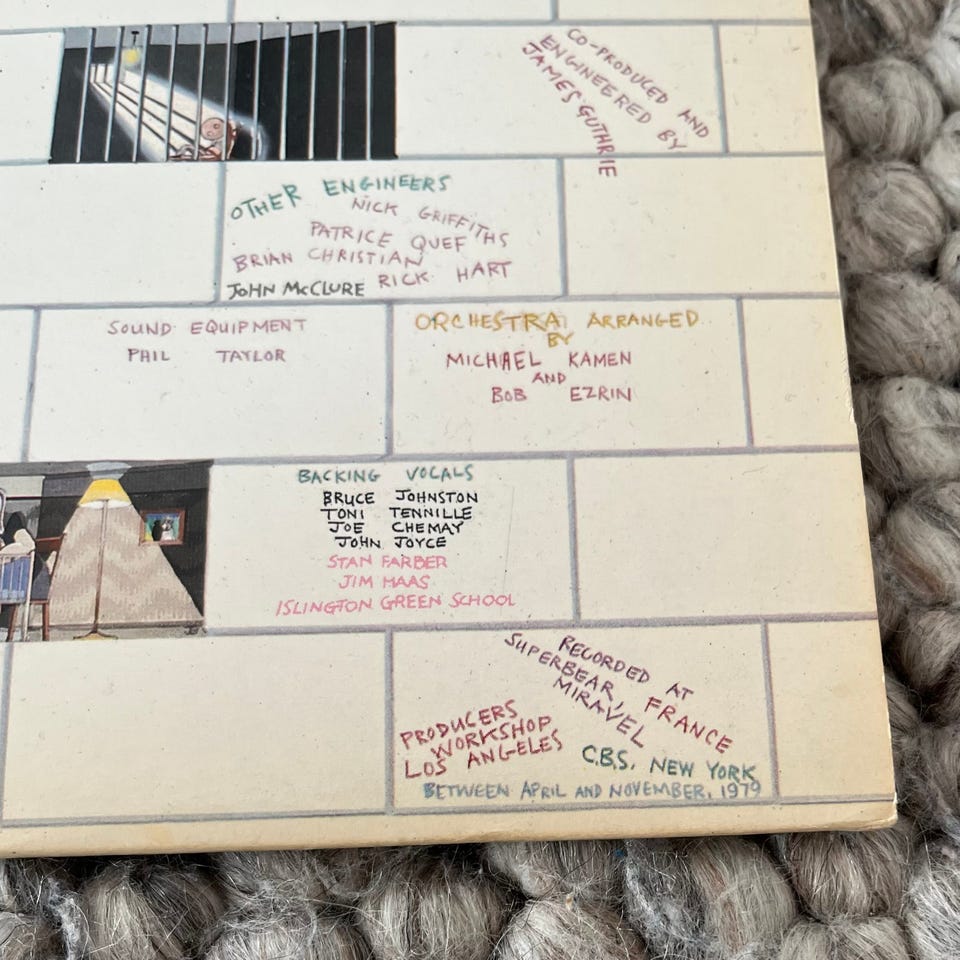 CO-PRODUCED AND
ENGINEERED BY
JAMES GUTHRIE
OTHER ENGINEERS
NICK GRIFFITHS
PATRICE QUEF
BRIAN CHRISTIAN
JOHN McCLURE RICK HART
SOUND EQUIPMENT
PHIL TAYLOR
ORCHESTRA ARRANGED
BY
MICHAEL KAMEN
AND
BOB EZRIN
BACKING VOCALS
BRUCE JOHNSTON
TONI TENNILLE
JOE CHEMAY
JOHN JOYCE
STAN FARBER
JIM HAAS
ISLINGTON GREEN SCHOOL
RECORDED AT
SUPERBEAR, FRANCE
MIRAVEL
PRODUCERS
WORKSHOP
LOS ANGELES
C.B.S. NEW YORK
BETWEEN APRIL AND NOVEMBER, 1979